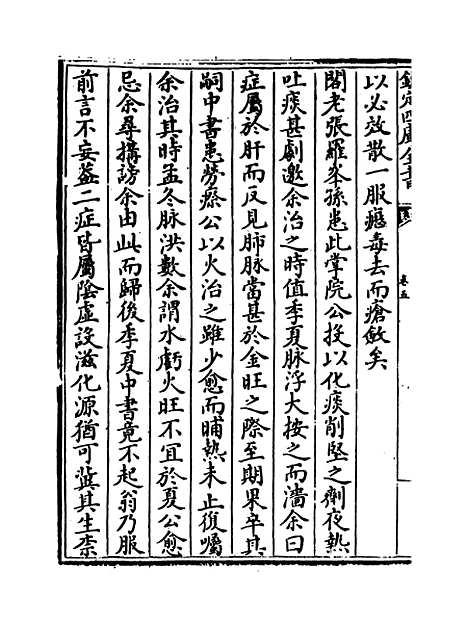 欽定四庫全書
卷五
以必效散一服瘛毒去而瘡斂矣
閣老張羅峯孫患此掌院公投以化痰削堅之劑夜熱
吐痰甚劇邀余治之時值季夏脉浮大按之而濇余曰
症屬於肝而反見肺脉當甚於金旺之際至期果卒其
嗣中書患勞瘵公以火治之雖少愈而晡熱未止復囑
余治其時孟冬脉洪數余謂水虧火旺不宜於夏公愈
忌余尋搆謗余由此而歸後季夏中書竟不起翁乃服
前言不妄葢二症皆屬陰虛設滋化源猶可兾其生柰